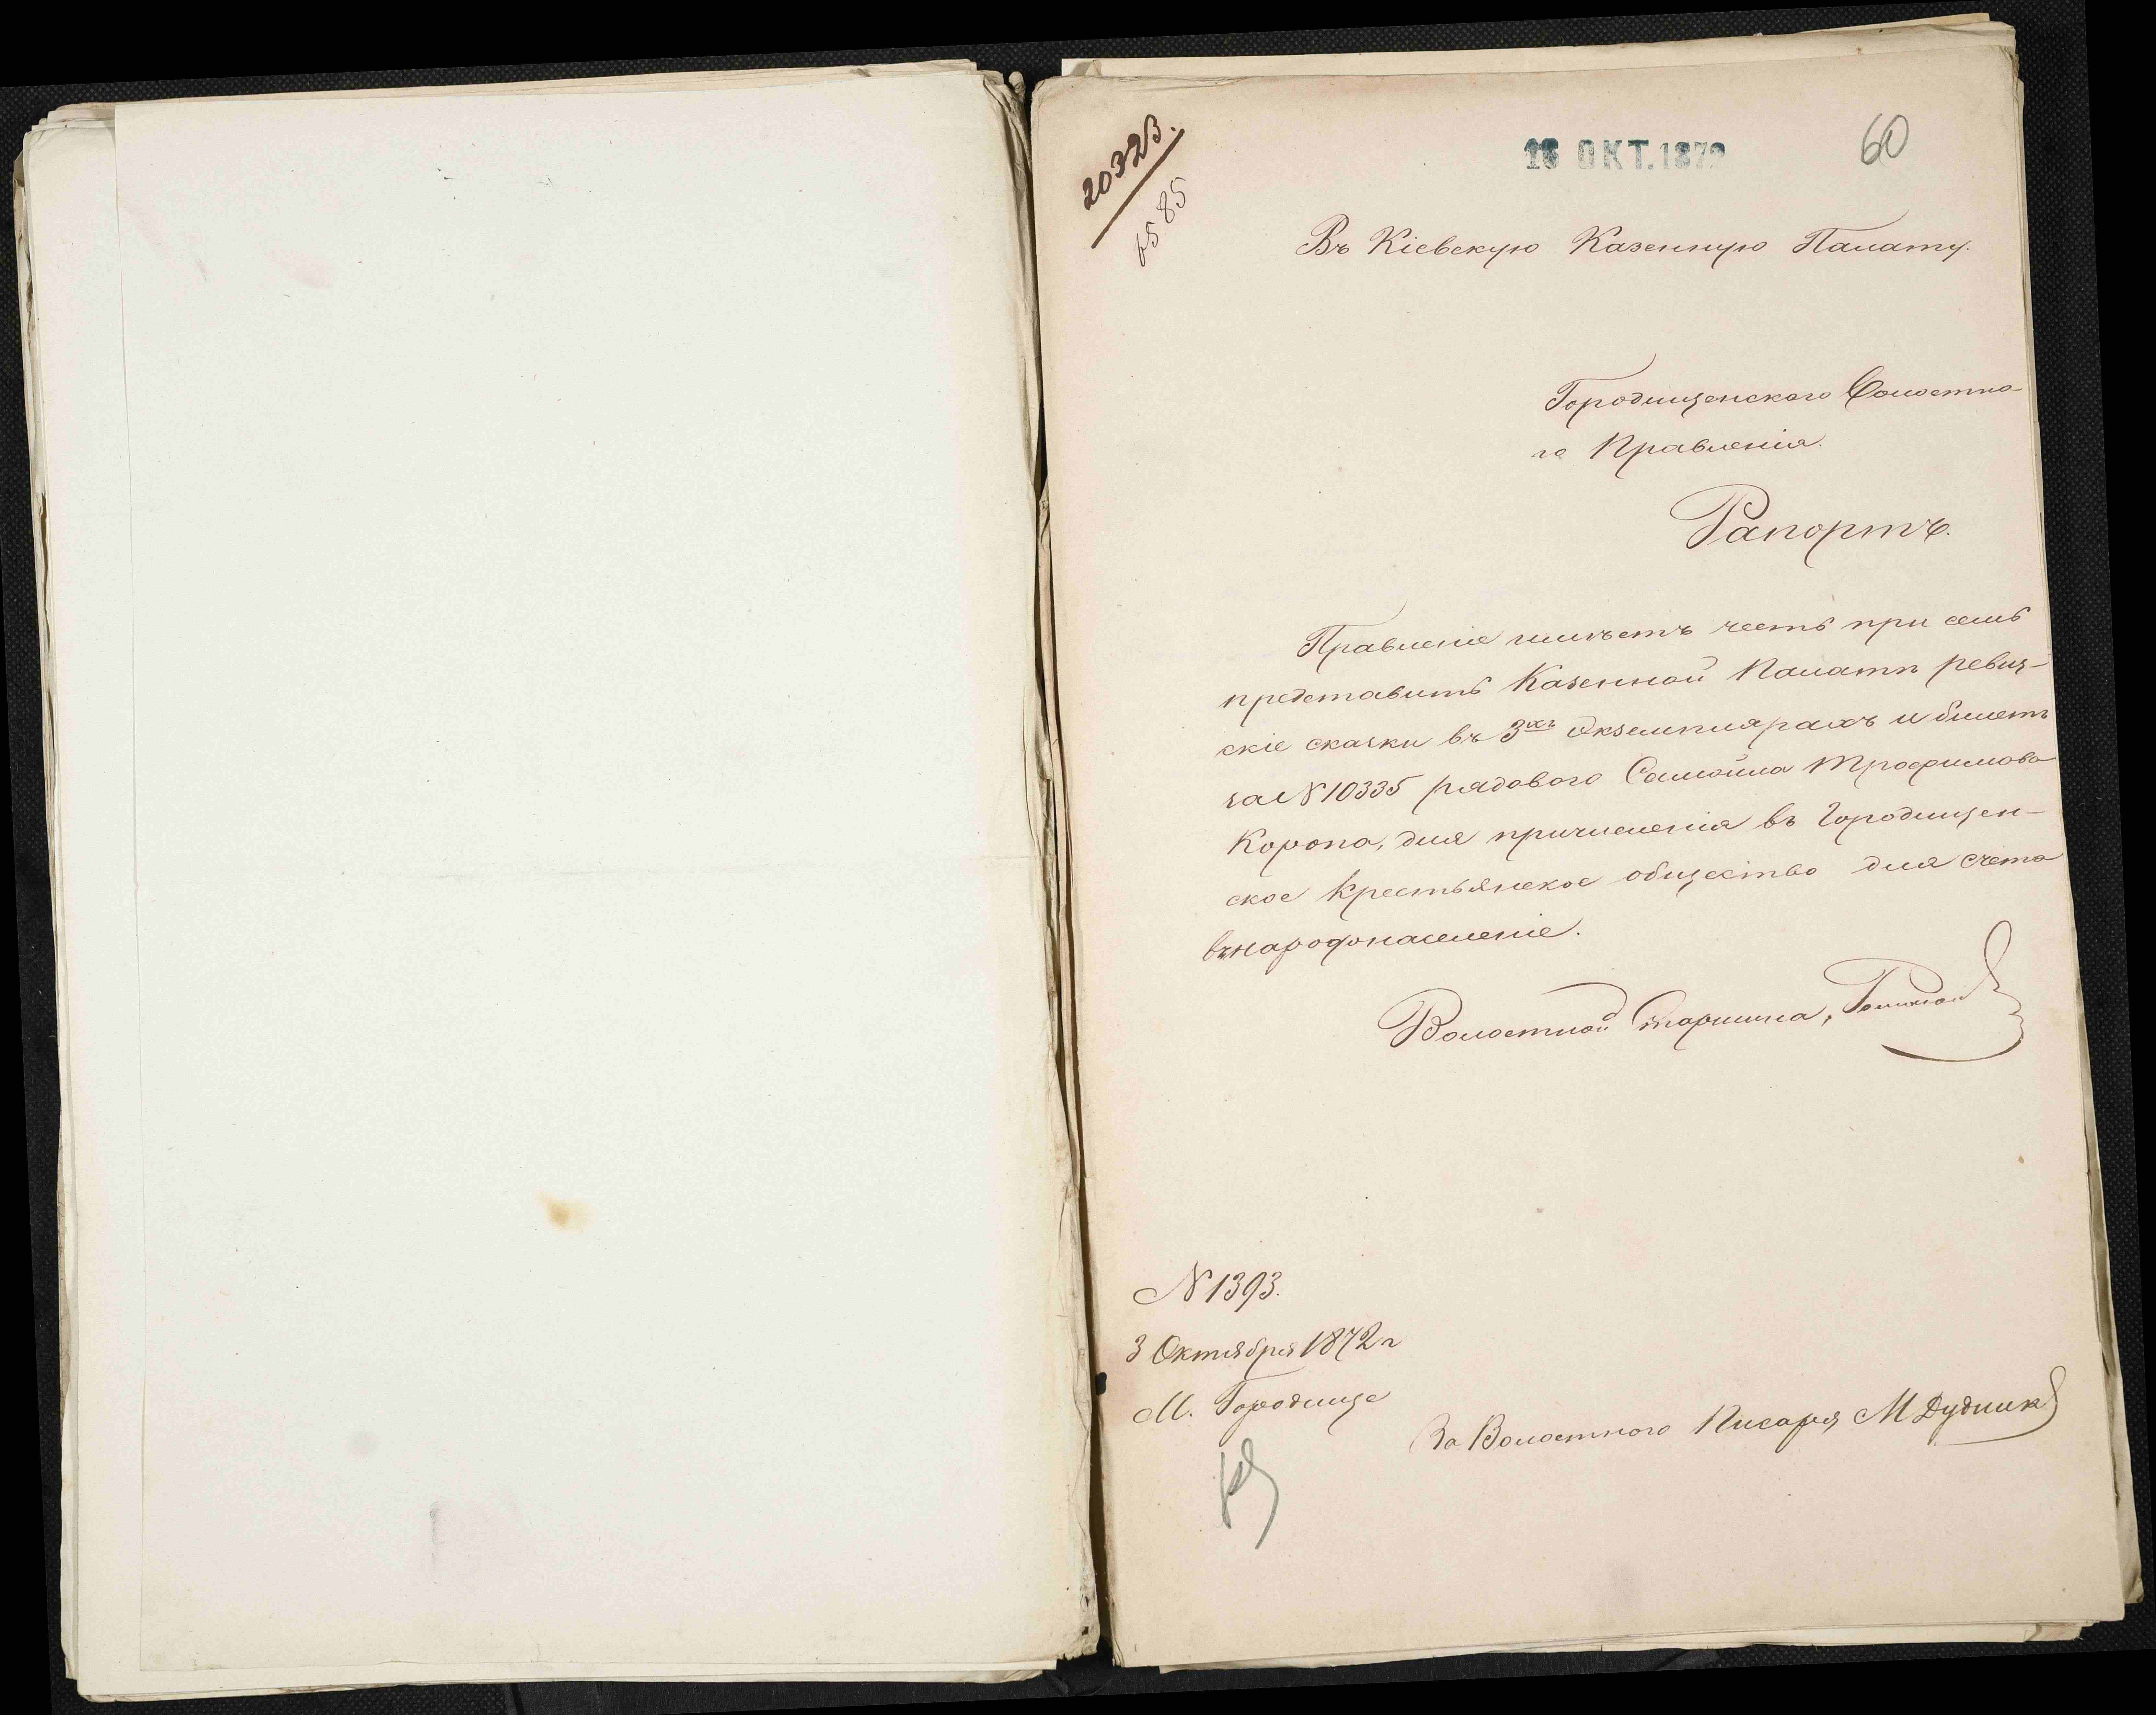 20323.
6585
16 ОКТ. 1872
60
Въ Кіевскую Казенную Палату.
Городищенскаго Волостна-
го Правленія.
Рапортъ.
Правленіе имѣетъ честь при семъ
представить Казенной Палатѣ ревиз-
скіе сказки въ 3хъ экземплярахъ и билетъ
за № 10335 рядового Самойла Трофимова
Коропа, для причисленія въ Городищен-
ское крестьянское общество для счета
въ народонаселеніе.
Волостной Старшина,
№ 1393.
3 Октября 1872 г
М. Городище
За Волостного Писаря М Дудникъ